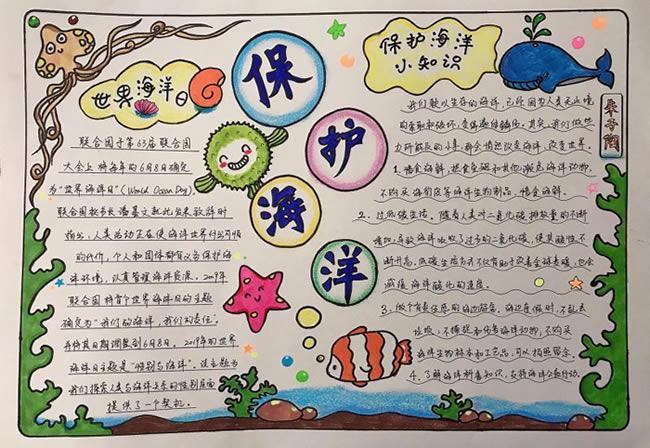 世界海洋日
联合国于第63届联合国
大会上将每年的6月8日确定
为"世界海洋日"(World Ocean Day)。
联合国秘书长潘基文就此发表致辞时
指出,人类活动正在使海洋世界付出可怕
的代价,个人和团体都有义务保护海
洋环境,认真管理海洋资源。2009年
联合国将首个世界海洋日的主题
确定为"我们的海洋,我们的责任"。
并将该日期调整到6月8日。2019年的世界
海洋日主题是"性别与海洋"。该主题为
我们探索人类与海洋关系的性别层面
提供了一个契机。
保
护
海
洋
保护海洋
小知识
我们赖以生存的海洋,已经因为人类无止境
的索取和破坏,变得
1. 惜食海鲜,拯救鱼翅和其他濒危海洋动物,
不购买海豹皮等海洋生物制品,惜食海鲜。
2. 过低碳生活。随着人类对二氧化碳排放量的不断
增加,导致海洋吸收了过多的二氧化碳,使其酸性不
断升高。低碳生活方式不仅有助于改善全球气候,也会
减缓海洋酸化的速度。
3. 做个有责任感的海边游客。海边度假时,不乱丢
垃圾,不捕捉和伤害海洋动物,不购买
海洋生物标本和工艺品,可以拍照留念。
4. 了解海洋科普知识,支持海洋公益行动。